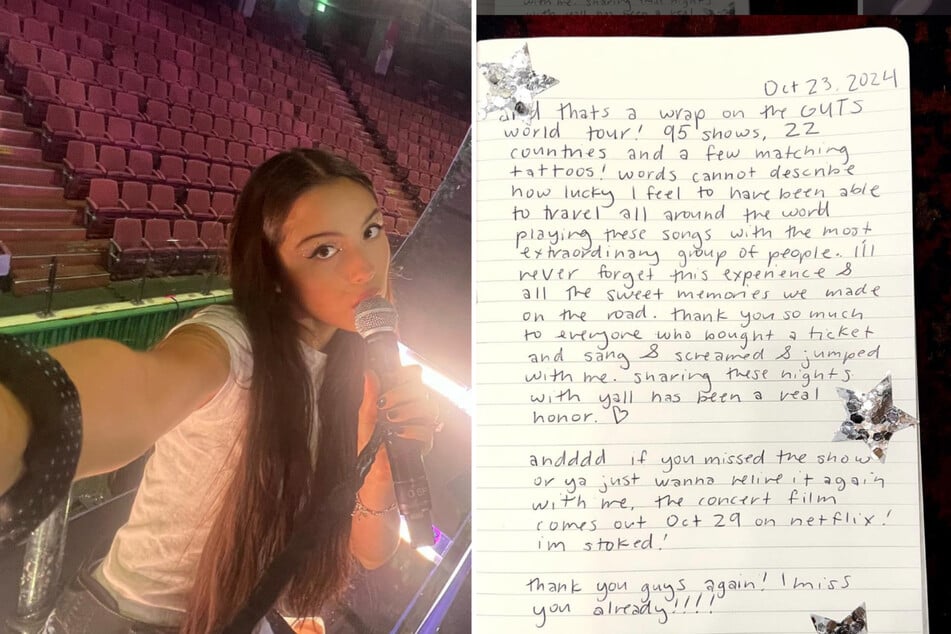 Oct 23, 2024
and thats a wrap on the GUTS
world tour! 95 shows, 22
countries and a few matching
tattoos! words cannot describe
how lucky I feel to have been able
to travel all around the world
playing these songs with the most
extraordinary group of people. I'll
never forget this experience &
all the sweet memories we made
on the road. thank you so much
to everyone who bought a ticket
and sang & screamed & jumped
with me. sharing these nights
with yall has been a real
honor. ♡
andddd if you missed the show
or ya just wanna relive it again
with me, the concert film
comes out Oct 29 on netflix!
im stoked!
thank you guys again! I miss
you already!!!!